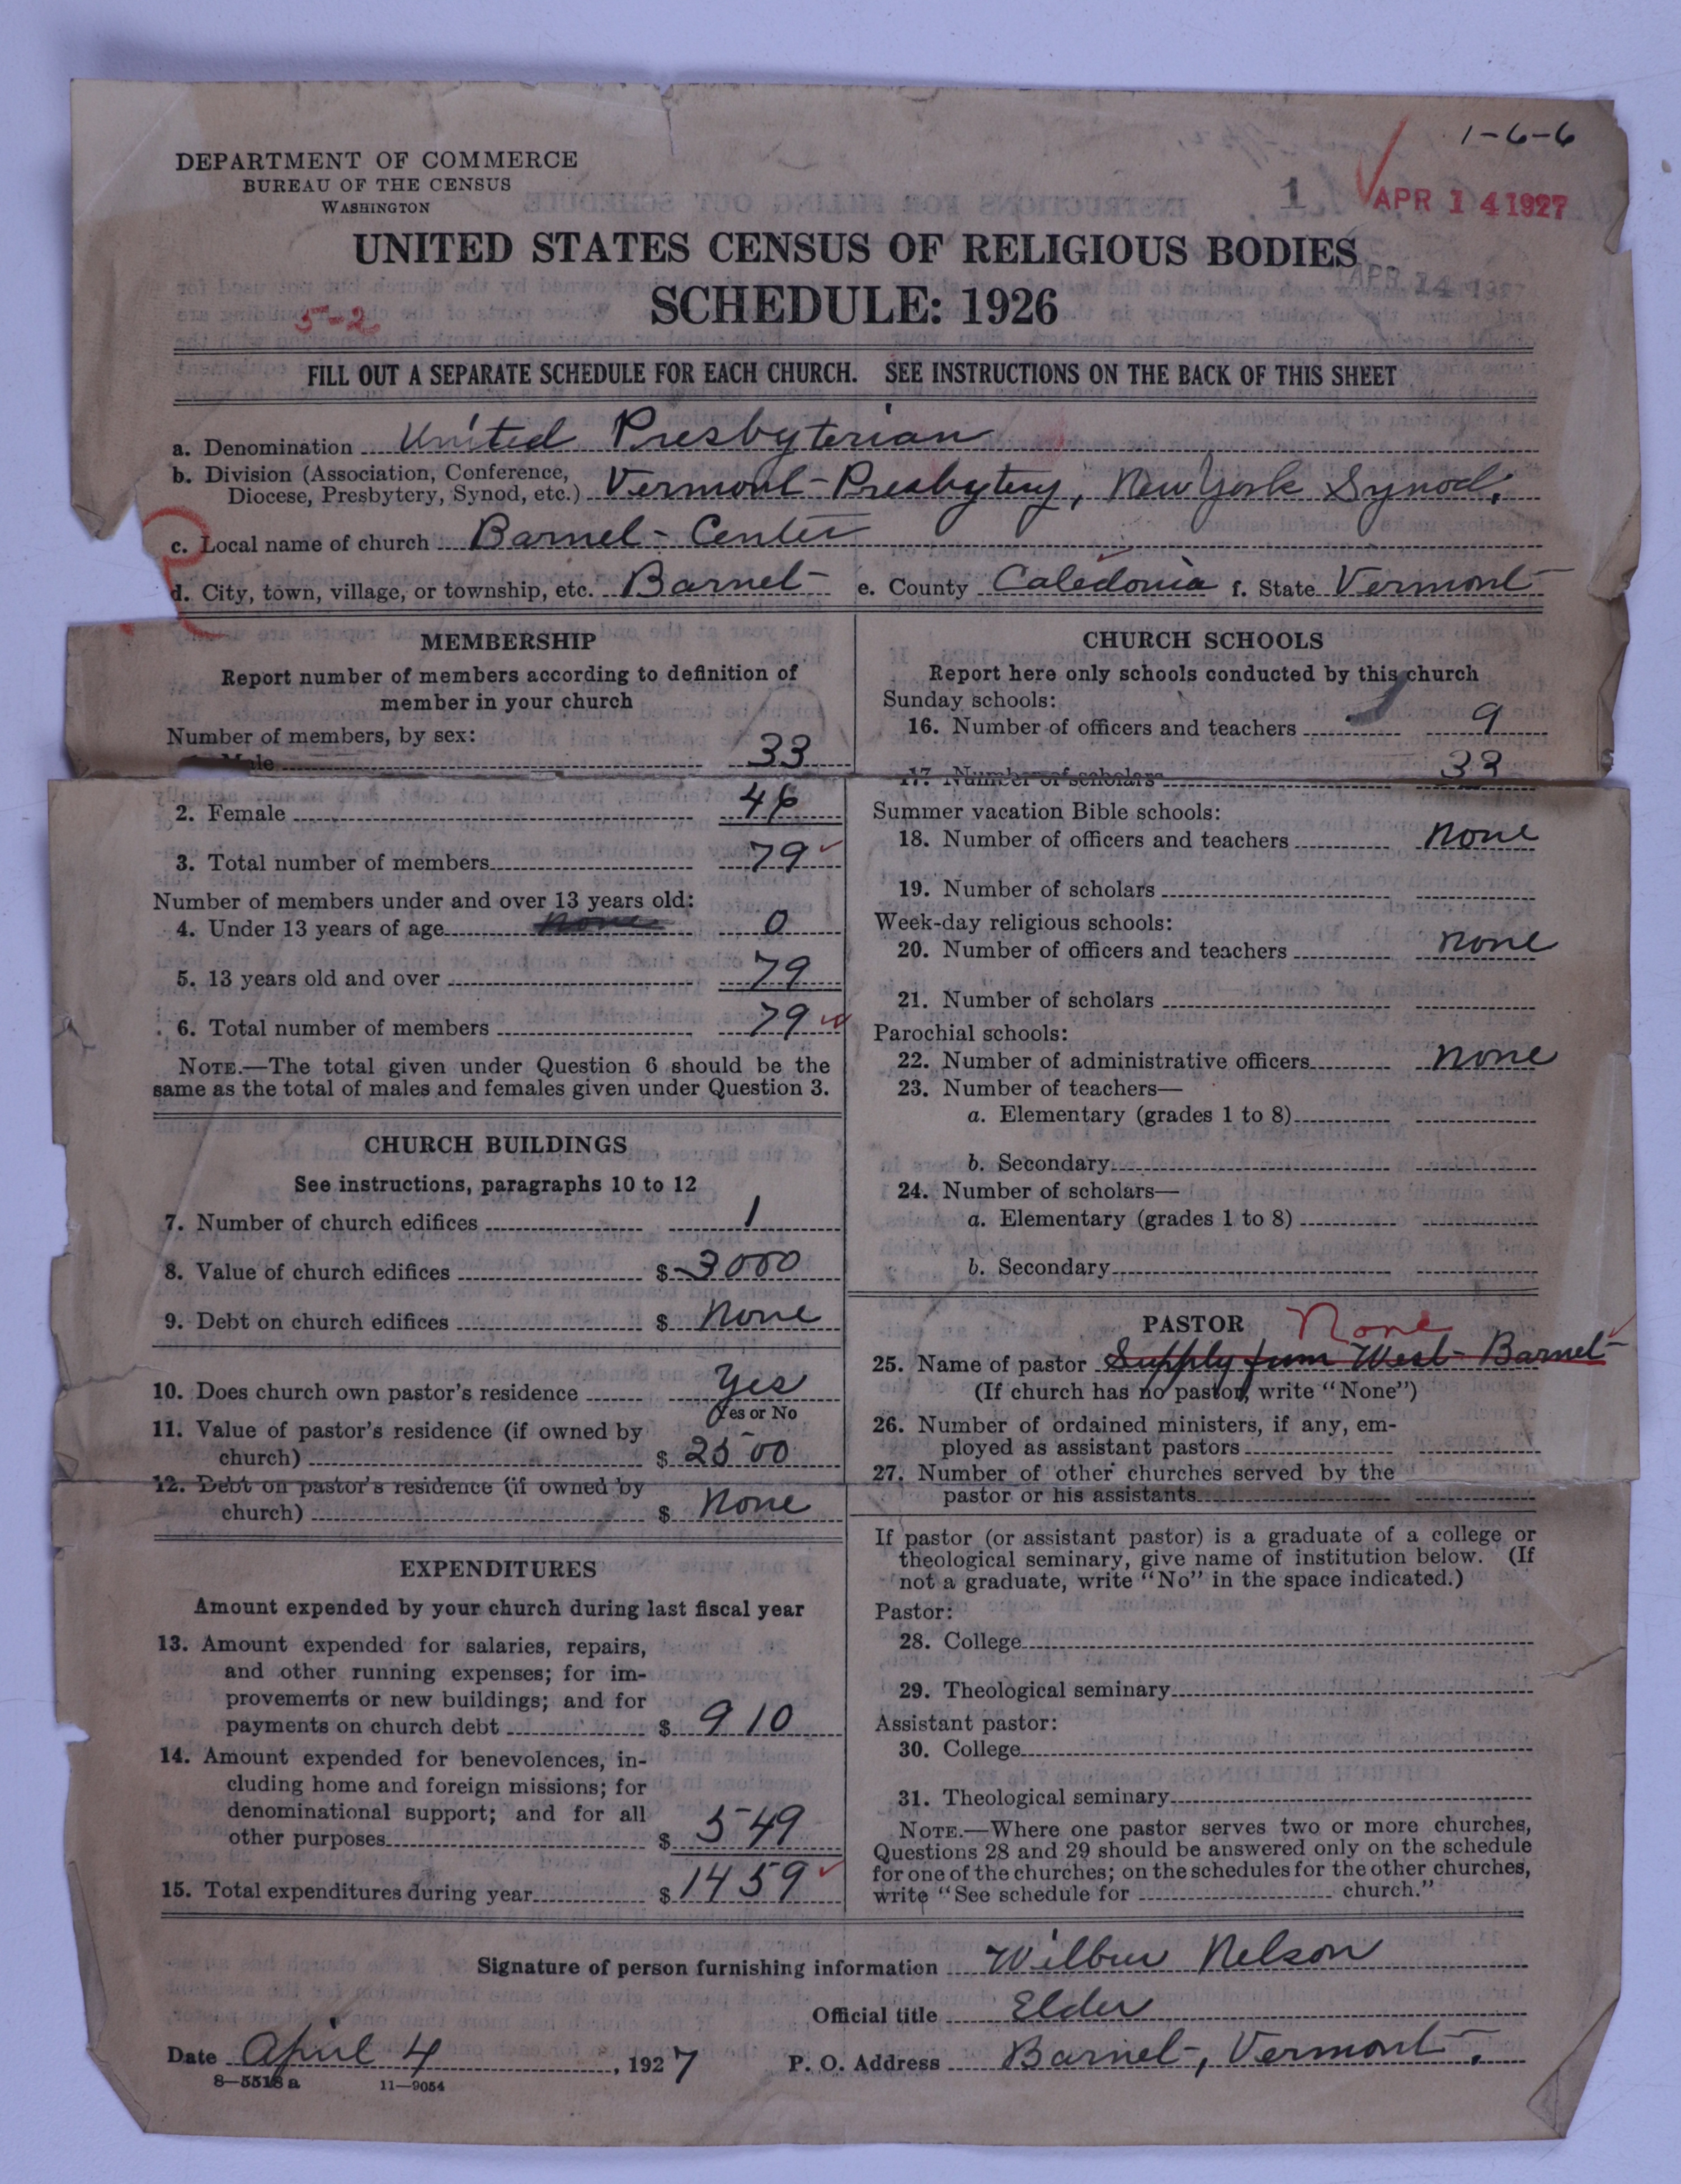 1-6-6
DEPARTMENT OF COMMERCE
BUREAU OF THE CENSUS
WASHINGTON
1 APR 14 1927
UNITED STATES CENSUS OF RELIGIOUS BODIES
APR 14 1927
SCHEDULE: 1926
5-2
FILL OUT A SEPARATE SCHEDULE FOR EACH CHURCH. SEE INSTRUCTIONS ON THE BACK OF THIS SHEET
a. Denomination United Presbyterian
b. Division (Association, Conference,
Diocese, Presbytery, Synod, etc.) Vermont Presbytery, New York Synod.
c. Local name of church Barnet Center
d. City, town, village, or township, etc. Barnet e. County Caledonia f. State Vermont
MEMBERSHIP
Report number of members according to definition of
member in your church
Number of members, by sex:
Male 33
2. Female 46
3. Total number of members 79
Number of members under and over 13 years old:
4. Under 13 years of age none 0
5. 13 years old and over 79
6. Total number of members 79
NOTE.—The total given under Question 6 should be the
same as the total of males and females given under Question 3.
CHURCH BUILDINGS
See instructions, paragraphs 10 to 12
7. Number of church edifices 1
8. Value of church edifices $ 3000
9. Debt on church edifices $ None
10. Does church own pastor's residence Yes
Yes or No
11. Value of pastor's residence (if owned by
church) $ 2500
12. Debt on pastor's residence (if owned by
church) $ None
EXPENDITURES
Amount expended by your church during last fiscal year
13. Amount expended for salaries, repairs,
and other running expenses; for im-
provements or new buildings; and for
payments on church debt $ 910
14. Amount expended for benevolences, in-
cluding home and foreign missions; for
denominational support; and for all
other purposes $ 549
15. Total expenditures during year $ 1459
CHURCH SCHOOLS
Report here only schools conducted by this church
Sunday schools:
16. Number of officers and teachers 9
17. Number of scholars 33
Summer vacation Bible schools:
18. Number of officers and teachers none
19. Number of scholars
Week-day religious schools:
20. Number of officers and teachers none
21. Number of scholars
Parochial schools:
22. Number of administrative officers none
23. Number of teachers—
a. Elementary (grades 1 to 8)
b. Secondary
24. Number of scholars—
a. Elementary (grades 1 to 8)
b. Secondary
PASTOR None
25. Name of pastor Supply from West Barnet
(If church has no pastor, write "None")
26. Number of ordained ministers, if any, em-
ployed as assistant pastors
27. Number of other churches served by the
pastor or his assistants
If pastor (or assistant pastor) is a graduate of a college or
theological seminary, give name of institution below. (If
not a graduate, write "No" in the space indicated.)
Pastor:
28. College
29. Theological seminary
Assistant pastor:
30. College
31. Theological seminary
NOTE.—Where one pastor serves two or more churches,
Questions 28 and 29 should be answered only on the schedule
for one of the churches; on the schedules for the other churches,
write "See schedule for church."
Signature of person furnishing information Wilbur Nelson
Official title Elder
Date April 4, 1927 P. O. Address Barnet, Vermont.
8—5518a 11—9054